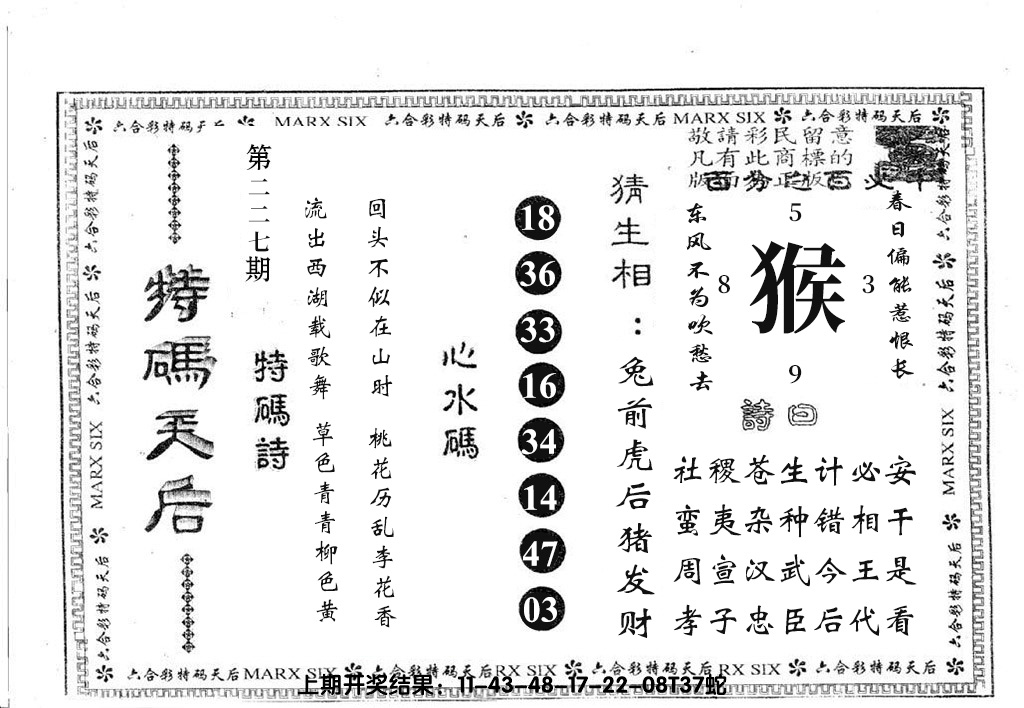 六合彩特码天后 MARX SIX 六合彩特码天后 六合彩特码天后 MARX SIX 六合彩特码天后
六合彩特码天后 六合彩特码天后 MARX SIX 六合彩特码天后
特碼天后
第二二七期
特碼詩
回头不似在山时 桃花历乱李花香
流出西湖载歌舞 草色青青柳色黄
心水碼
18
36
33
16
34
14
47
03
猜生相：兔前虎后猪发财
敬請彩民留意
凡有此商標的
东风不为吹愁去
春日偏能惹恨长
5
8 猴 3
9
詩曰
社稷苍生计必安
蛮夷杂种错相干
周宣汉武今王是
孝子忠臣后代看
六合彩特码天后 六合彩特码天后 MARX SIX 六合彩特码天后
六合彩特码天后 MARX SIX 六合彩特码天后 RX SIX 六合彩特码天后 RX SIX 六合彩特码天后
上期开奖结果：11-43-48-17-22-08T37蛇